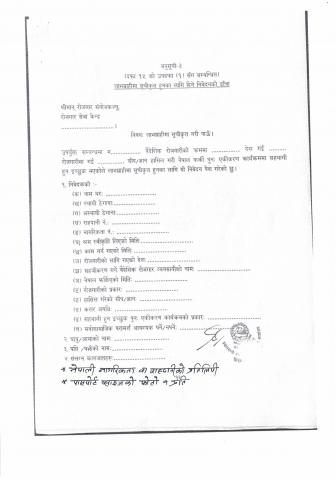 अनुसूची-३
(दफा १५ को उपदफा (१) सँग सम्बन्धित)
लाभग्राहीमा सूचीकृत हुनका लागि दिने निवेदनको ढाँचा
श्रीमान् रोजगार संयोजकज्यू,
रोजगार सेवा केन्द्र
..............................।
विषयः लाभग्राहीमा सूचीकृत गरी पाऊँ।
उपर्युक्त सम्बन्धमा म............ वैदेशिक रोजगारीको क्रममा .................. देश गई ........
रोजगारीमा गई ............ सीप/ज्ञान हासिल गरी नेपाल फर्की पुनः एकीकरण कार्यक्रममा सहभागी
हुन इच्छुक भएकोले लाभग्राहीमा सूचीकृत हुनका लागि यो निवेदन पेश गरेको छु।
१. निवेदकको :-
(क) नाम थरः
(ख) स्थायी ठेगानाः
(ग) अस्थायी ठेगानाः
(घ) राहदानी नं.:
(ङ) नागरिकता नं.:
(च) श्रम स्वीकृति लिएको मितिः
(छ) काम गर्न गएको मितिः
(ज) रोजगारीको लागि गएको देशः
(झ) सहजीकरण गर्ने वैदेशिक रोजगार व्यवसायीको नामः
(ञ) नेपाल फर्किएको मितिः
(ट) रोजगारीको प्रकारः
(ठ) हासिल गरेको सीप/ज्ञानः
(ड) करार अवधिः
(ढ) सहभागी हुन इच्छुक पुनः एकीकरण कार्यक्रमको प्रकारः
(ण) मनोसामाजिक परामर्श आवश्यक पर्ने/नपर्नेः
२. बाबु/आमाको नामः
३. पति /पत्नीको नामः
४. संलग्न कागजातहरूः
* नेपाली नागरिकता वा राहदानीको प्रतिलिपी
* पासपोर्ट साइजको फोटो १ प्रति